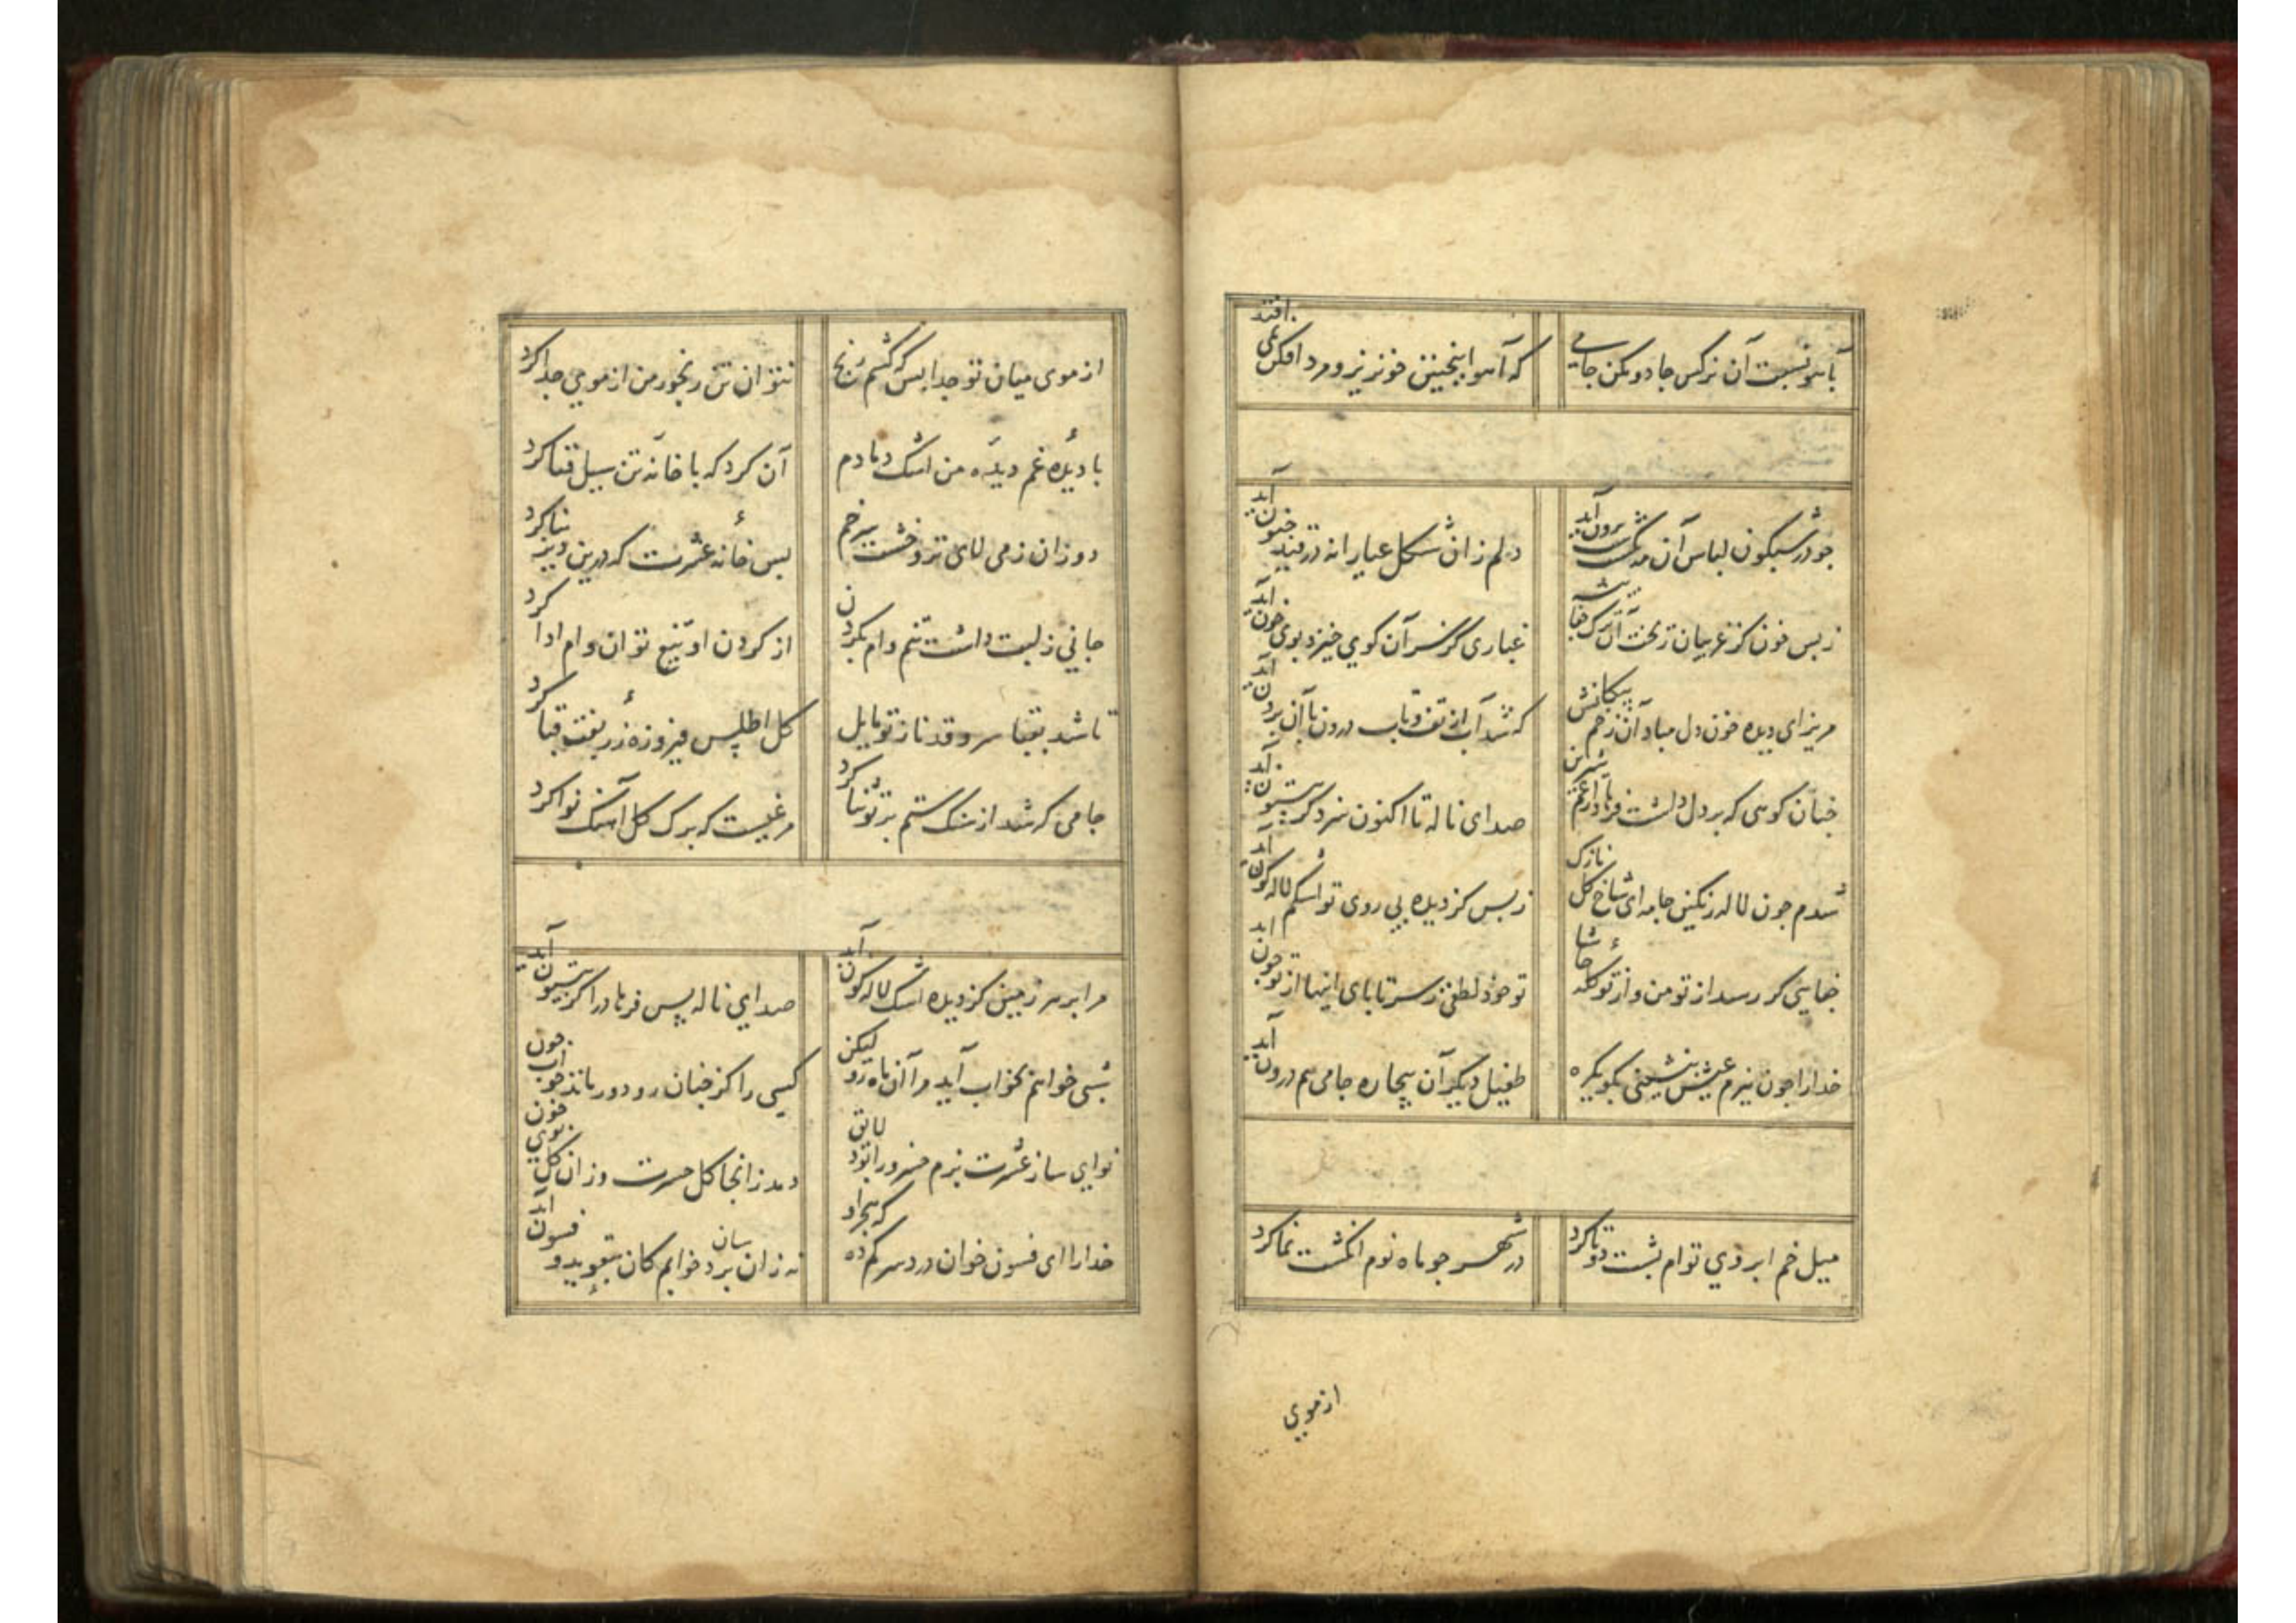 بآهو نسبت آن نرکس جادو مکن جامی
که آهو اینچنین خونریز و مردافکن نمی افتد
جو در شبکون لباس آن مه شب برون آید
دلم زان شکل عیارانه در قید جنون آید
ز بس خون کز غریبان ریخت آن ترک جفا پیشه
غباری کز سر آن کوی خیزد بوی خون آید
مریز ای دیده خون دل مباد آن زخم پیکانش
که شد آب از تف و تاب درون با آن برون آید
جنان کوهی که بر دل داشت فرهاد از غم شیرین
صدای ناله تا اکنون سزد کز بیستون آید
شدم جون لاله رنکین جامه ای شاخ کل نازک
ز بس کز دیده بی روی تو اشکم لاله کون آید
جفایی کر رسد از تو من و از تو کله حاشا
تو خود لطفی ز سر تا پای اینها از تو جون آید
خدا را جون ببزم عیش بنشینی بکو یکره
طفیل دیکران بیجاره جامی هم درون آید
میل خم ابروی توام پشت دوتا کرد
در شهر جو ماه نوم انکشت نما کرد
از موی
از موی میان تو جدا بس که کشم رنج
نتوان تن رنجور من از موی جدا کرد
با دیده غم دیده من اشک دمادم
آن کرد که با خانه تن سیل فنا کرد
دوران ز می لای تر و خشت سر خم
بس خانه عشرت که درین دیر بنا کرد
جانی ز لبت داشت تنم وام بکردن
از کردن او تیغ توان وام ادا کرد
تا شد بقبا سرو قد ناز تو مایل
کل اطلس فیروزه زربفت قبا کرد
جامی که شد از سنک ستم بر تو ثنا کرد
مرغیست که بر کل آهنک نوا کرد
مرا بر سر زمین کز دیده اشک لاله کون آید
صدای ناله پس فرهاد را کز بیستون آید
شبی خواهم بخواب آید مرا آن ماه رو لیکن
کسی را کز جنان رو دور ماند خواب جون آید
نوای ساز عشرت بزم خسرو را بود لایق
دمد زانجا کل حسرت وزان کل بوی خون آید
خدا را ای فسون خوان درد سر کم ده که بیمار او
نه زان سان برد خوابم کان بتعویذ و فسون آید